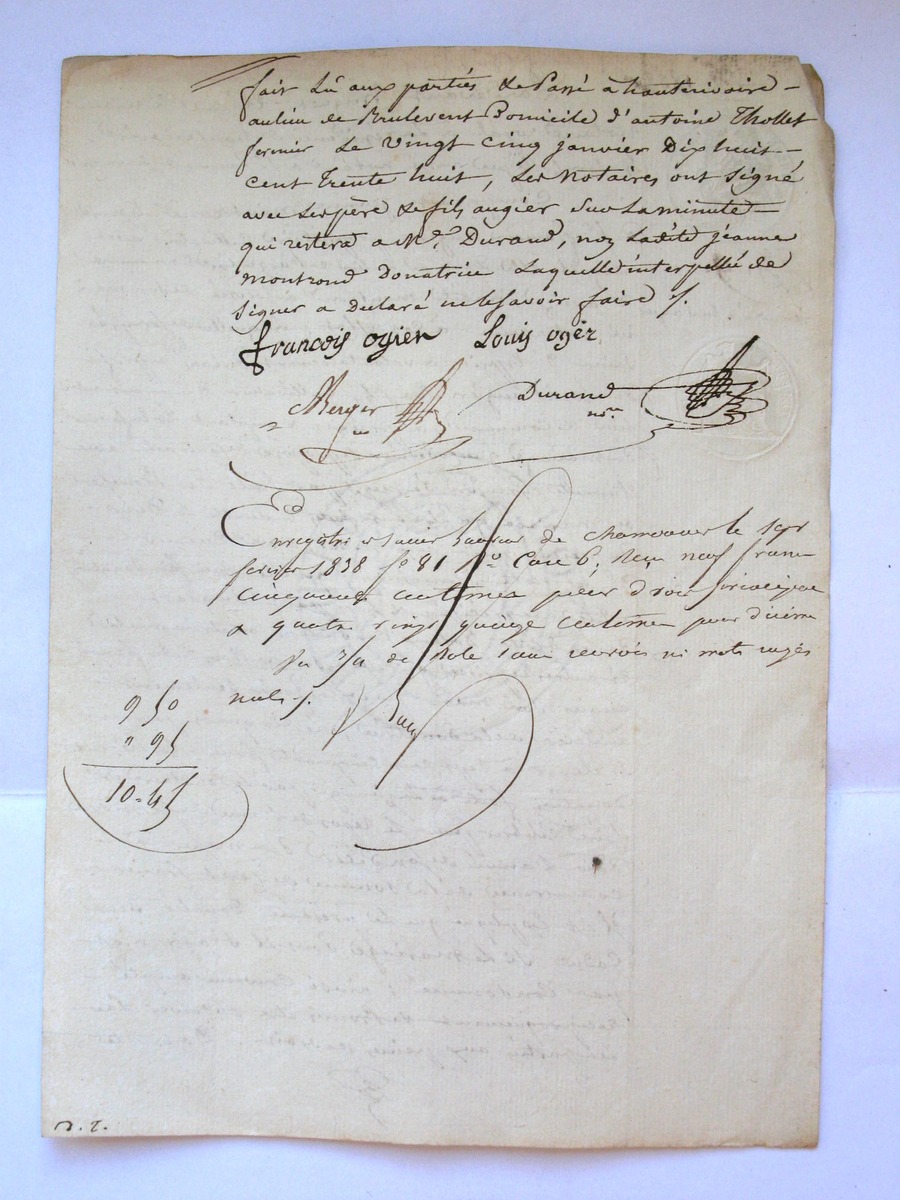 fait Lû aux parties & Passé à hauterivoire –
au lieu de Brulevent Domicile d'antoine Thollet
fermier Le Vingt cinq janvier Dix huit –
cent Trente huit, Les Notaires ont signé
avec Les père & fils augier Sur La minute –
qui restera a Me. Durand, non Ladite jeanne
montrond Donatrice Laquelle interpellée de
signer a Declaré ne le savoir faire ./.
francois ogier Louis ogér
Berger
Durand
nre.
Enregistré à de le 1er
fevrier 1838 fo 81 Vo. Case 6, Reçu neuf francs
cinquante centimes pour droit
& quatre vingt quinze centimes pour dixième
de Role sans renvois ni mots rayés
nuls ./.
9 50
" 95
10=45
D. T.